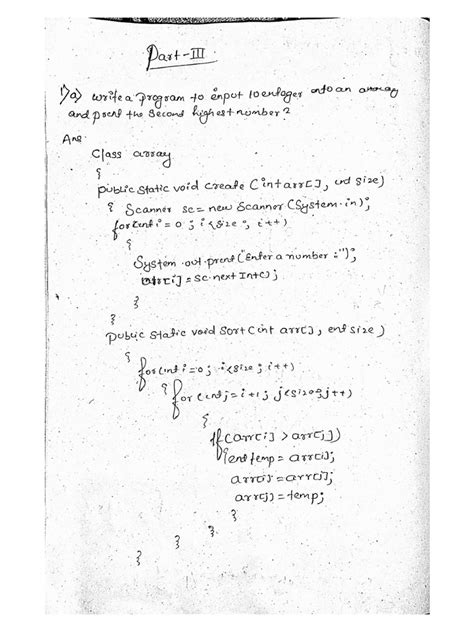 Part-III
1)a) Write a program to input 10 enteger into an array
and prent the second highest number?
Ans
Class array
{
public static void create (int arr[], int size)
{ Scanner sc = new Scanner (System.in);
for(int i=0; i<size; i++)
{
System.out.prent("Enter a number :");
arr[i] = sc.nextInt();
}
}
public static void sort (int arr[], int size)
{
for(int i=0; i<size; i++)
{ for(int j=i+1; j<size; j++)
{
if(arr[i] > arr[j])
{int temp = arr[i];
arr[i] = arr[j];
arr[j] = temp;
}
}
}
}